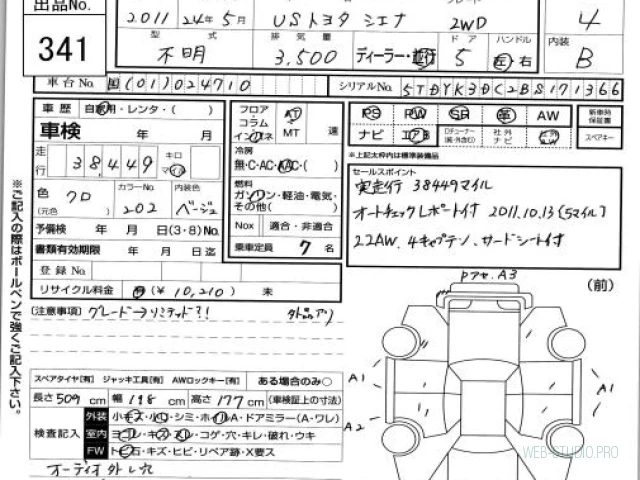 出品No.
341
2011 24年5月 USトヨタ シエナ 2WD 4
型式 排気量 ドア ハンドル 内装
不明 3,500 ディーラー・並行 5 左・右 B
車台No. 国(01)024710 シリアルNo. 5TDYK3DC2BS171366
車歴 自家用・レンタ・( )
車検 年 月
走行 38,449 キロ マイル
色 クロ (元色) カラーNo. 202 内装色 ベージュ
予備検 年 月 日(3・8)No.
書類有効期限 年 月 日迄
登録No.
リサイクル料金 有(¥ 10,210) 未
フロア AT
コラム
インパネ MT 速
冷房
無・C・AC・AAC・( )
燃料
ガソリン・軽油・電気・
その他( )
Nox 適合・非適合
乗車定員 7 名
PS PW SR 革 AW
ナビ エアB 社外ナビ
新車時保証書
スペアキー
※上記太枠内は標準装備品
セールスポイント
実走行 38449マイル
オートチェックレポート付 2011.10.13(5マイル)
22AW. 4キャプテン. サードシート付
[注意事項] グレード→リミテッド?!
スペアタイヤ[有] ジャッキ工具[有] AWロックキー[有] ある場合のみ○
長さ 509 cm 幅 198 cm 高さ 177 cm (車検証上の寸法)
検査記入
外装 小キズ・小凹・シミ・ホイルA・ドアミラー(A・ワレ)
室内 ヨゴレ・キズ・スレ・コゲ・穴・キレ・破れ・ウキ
FW トビ石・キズ・ヒビ・リペア跡・X要ス
オーディオ外し穴
Pアセ.A3
(前)
A1
A1
A2
※ご記入の際はボールペンで強くご記入下さい。
WEB-STUDIO.PRO